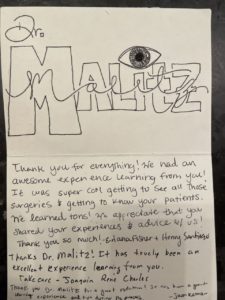 Dr.
MALITZ
Thank you for everything! We had an
awesome experience learning from you!
It was super cool getting to see all those
surgeries & getting to know your patients.
We learned tons! We appreciate that you
shared your experiences & advice w/ us!
Thank you so much! - Fisher &
Thanks Dr. Malitz! It has truly been an
excellent experience learning from you.
Take care - Joaquin Rene Charles
Thank you Dr. Malitz for a great
experience and